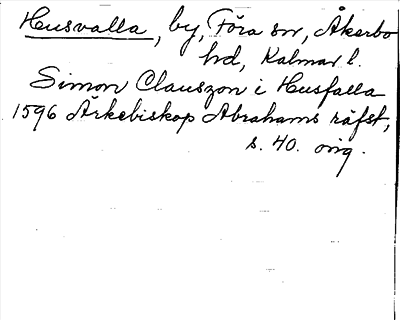 Husvalla, by, Föra sn, Åkerbo
hd, Kalmar l.
Simon Clauszon i Husfalla
1596 Ärkebiskop Abrahams räfst,
s. 40. orig.